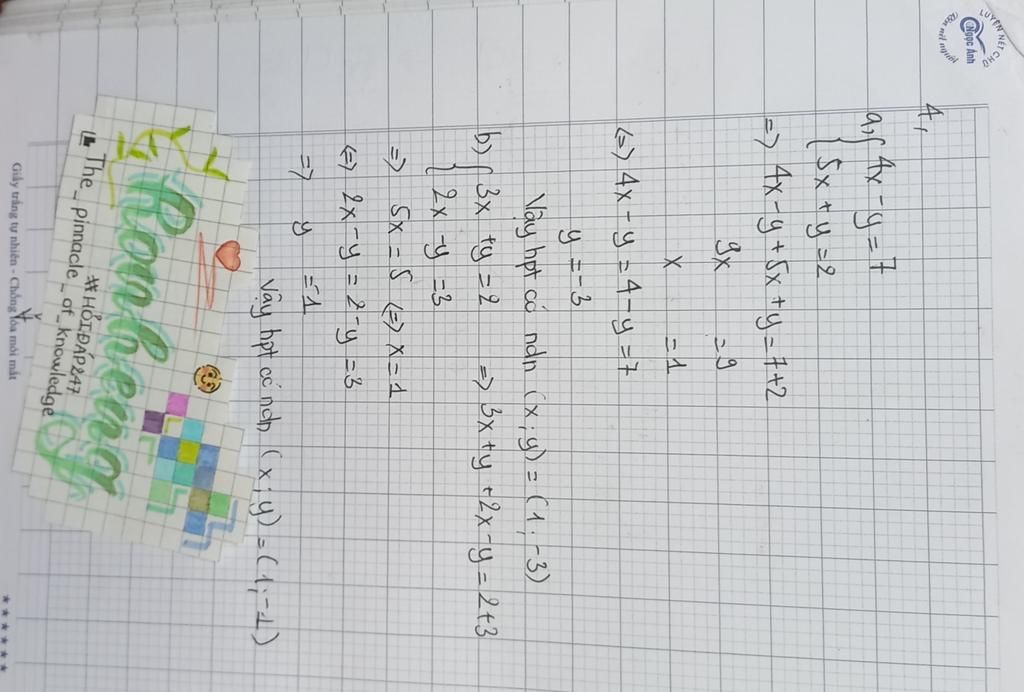 LUYỆN NÉT CHỮ
Ngọc Ánh
Rèn nết người
4,
a, { 4x - y = 7
{ 5x + y = 2
=> 4x - y + 5x + y = 7 + 2
9x = 9
x = 1
<=> 4x - y = 4 - y = 7
y = -3
Vậy hpt có ndn (x; y) = (1; -3)
b) { 3x + y = 2 => 3x + y + 2x - y = 2 + 3
{ 2x - y = 3
=> 5x = 5 <=> x = 1
<=> 2x - y = 2 - y = 3
=> y = -1
Vậy hpt có ndn (x; y) = (1; -1)
#HỎIĐÁP247
The_pinnacle_of_knowledge
Giấy trắng tự nhiên - Chống lóa mỏi mắt